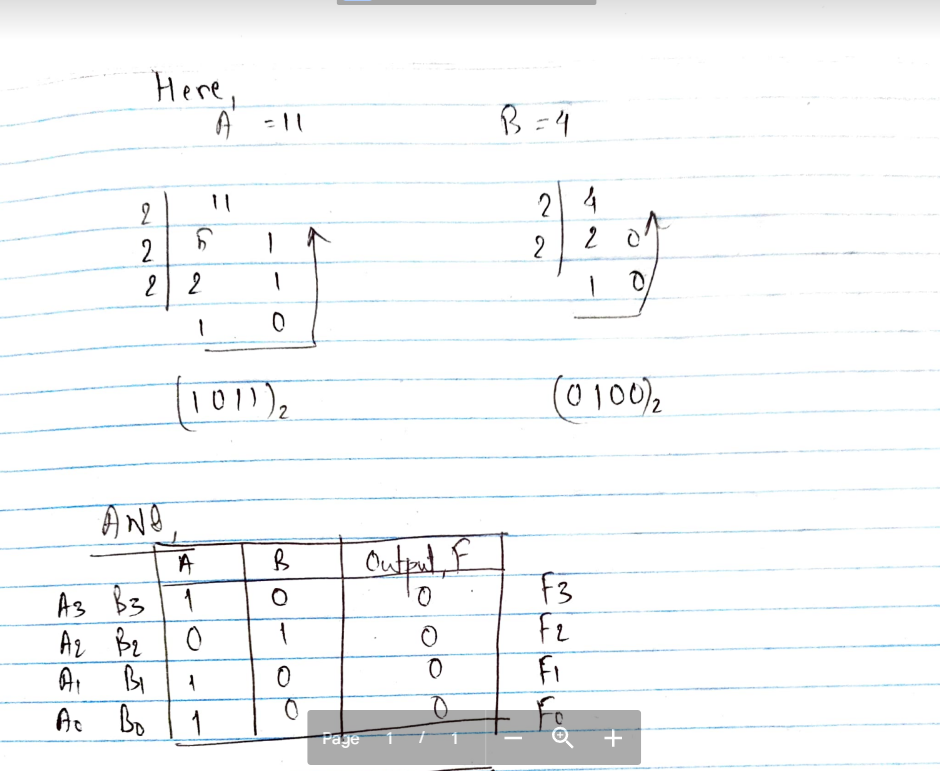 Here,
A = 11 B = 4
2 11 2 4
2 5 1 2 2 0
2 2 1 1 0
1 0
(1011)2 (0100)2
AND,
A B Output, F
A3 B3 1 0 0 F3
A2 B2 0 1 0 F2
A1 B1 1 0 0 F1
A0 B0 1 0 0 F0
Page 1 / 1